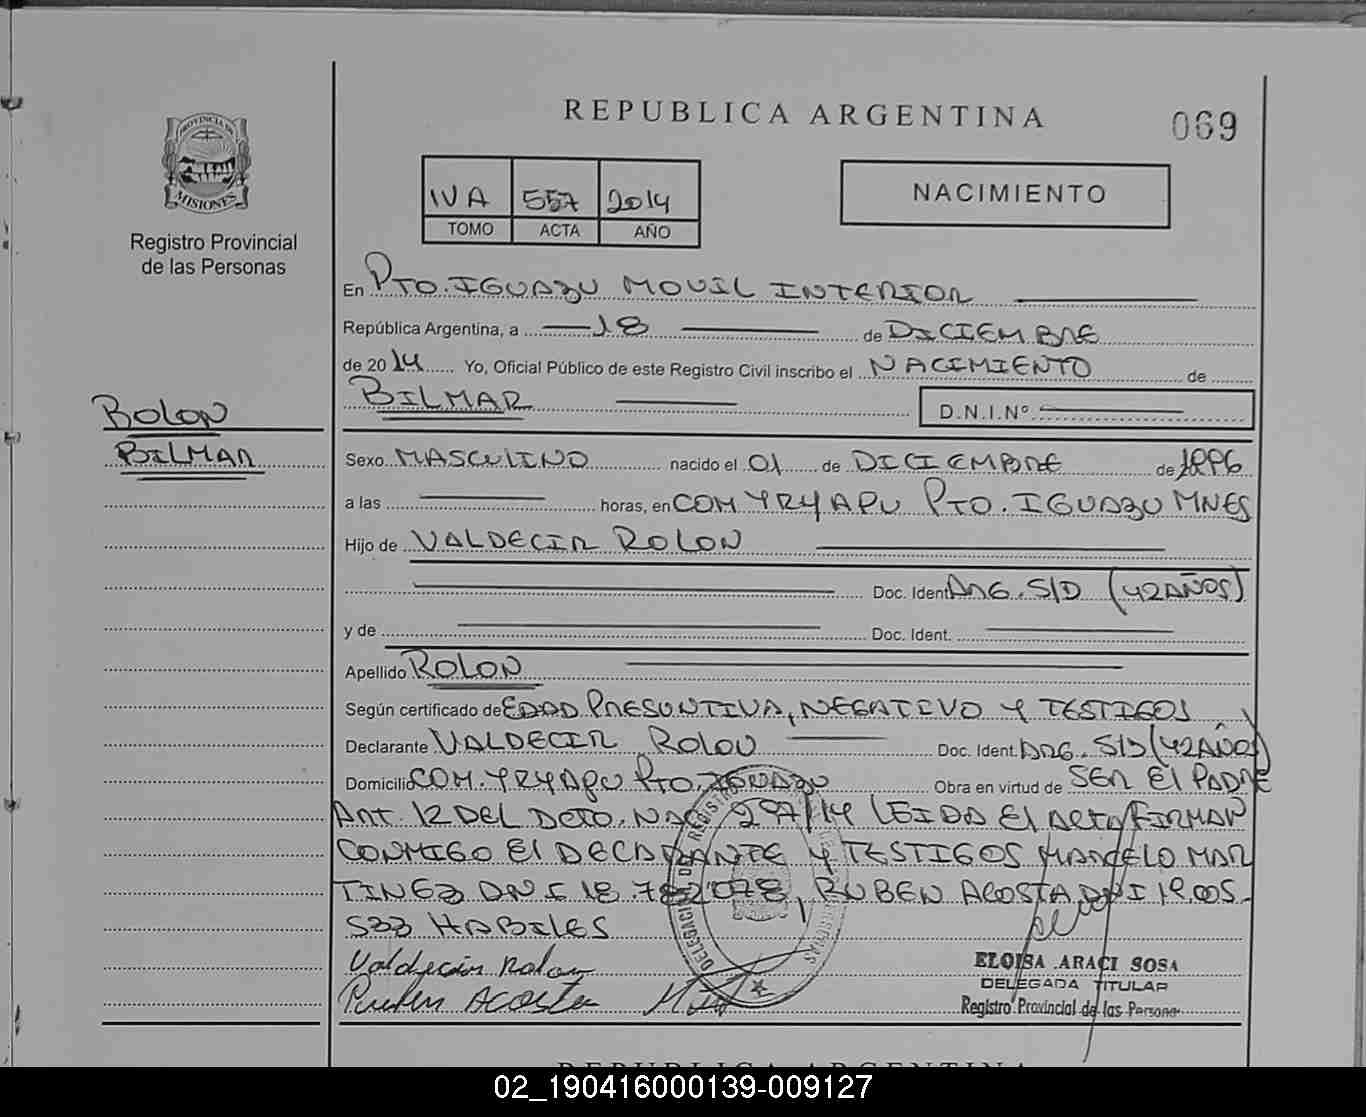 REPUBLICA ARGENTINA
069
PROVINCIA DE
MISIONES
Registro Provincial
de las Personas
IVA 557 2014
TOMO ACTA AÑO
NACIMIENTO
En PTO. IGUAZU MOVIL INTERIOR
República Argentina, a 18 de DICIEMBRE
de 2014 Yo, Oficial Público de este Registro Civil inscribo el NACIMIENTO de
BILMAR D.N.I.Nº
ROLON
BILMAR
Sexo MASCULINO nacido el 01 de DICIEMBRE de 1996
a las horas, en COM YRYAPU PTO. IGUAZU MNES
Hijo de VALDECIR ROLON
Doc. Ident. ARG. S/D (42 AÑOS)
y de Doc. Ident.
Apellido ROLON
Según certificado de EDAD PRESUNTIVA, NEGATIVO Y TESTIGOS
Declarante VALDECIR ROLON Doc. Ident. ARG. S/D (42 AÑOS)
Domicilio COM. YRYAPU PTO. IGUAZU Obra en virtud de SER El PADRE
ART. 12 DEL DCTO. NAC. 297/14 LEIDA El ACTA FIRMAN
CONMIGO El DECARANTE Y TESTIGOS MARCELO MAR
TINEZ DNI 18.782078, RUBEN ACOSTA DNI 19.005.
533 HABILES
Valdecir Rolon
Ruben Acosta
ELOISA ARACI SOSA
DELEGADA TITULAR
Registro Provincial de las Personas
REPUBLICA ARGENTINA
02_190416000139-009127